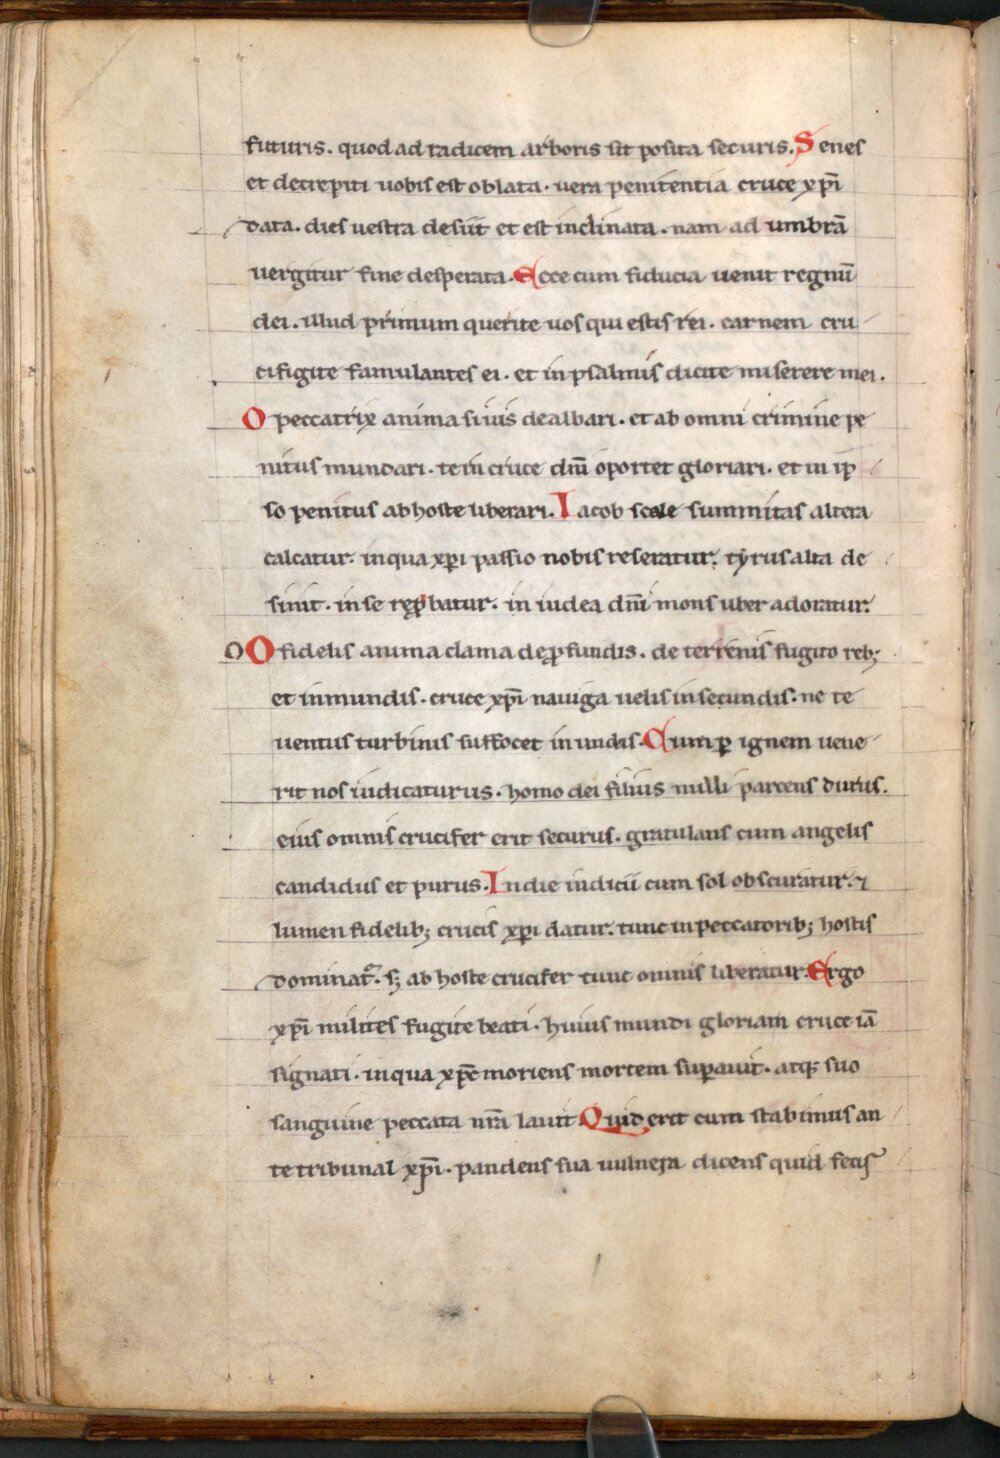 futuris. quod ad radicem arboris sit posita securis. Senes
et decrepiti uobis est oblata. uera penitentia cruce xp̄i
data. dies uestra desiit et est inclinata. nam ad umbrā
uergitur fine desperata. Ecce cum fiducia uenit regnū
dei. illud primum querite uos qui estis rei. carnem cru
cifigite famulantes ei. et in psalmis dicite miserere mei.
O peccatrix anima si uis dealbari. et ab omni crimine pe
nitus mundari. te in cruce dnī oportet gloriari. et in ip
so penitus ab hoste liberari. Iacob scale summitas altera
calcatur. in qua xp̄i passio nobis reseratur. tyrus alta de
sinit. in se reꝓbatur. in iudea dnī mons uber adoratur.
O O fidelis anima clama de ꝓfundis. de terrenis fugito reb;
et inmundis. cruce xp̄i nauiga uelis in secundis. ne te
uentus turbinis suffocet in undis. Cum ꝑ ignem uene
rit nos iudicaturus. homo dei filius nulli parcens durus.
eius omnis crucifer erit securus. gratulans cum angelis
candidus et purus. In die iudicii cum sol obscuratur. ⁊
lumen fidelib; crucis xp̄i datur. tunc in peccatorib; hostis
dominat᷑. s; ab hoste crucifer tunc omnis liberatur. Ergo
xp̄i milites fugite beati. huius mundi gloriam cruce iā
signati. in qua xp̄c moriens mortem suꝑauit. atq; suo
sanguine peccata nr̄a lauit Quid erit cum stabimus an
te tribunal xp̄i. pandens sua uulnera dicens quid fecis